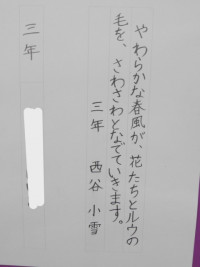 やわらかな春風が、花たちとルウの
毛を、さわさわとなでていきます。
三年　西谷　小雪
三年